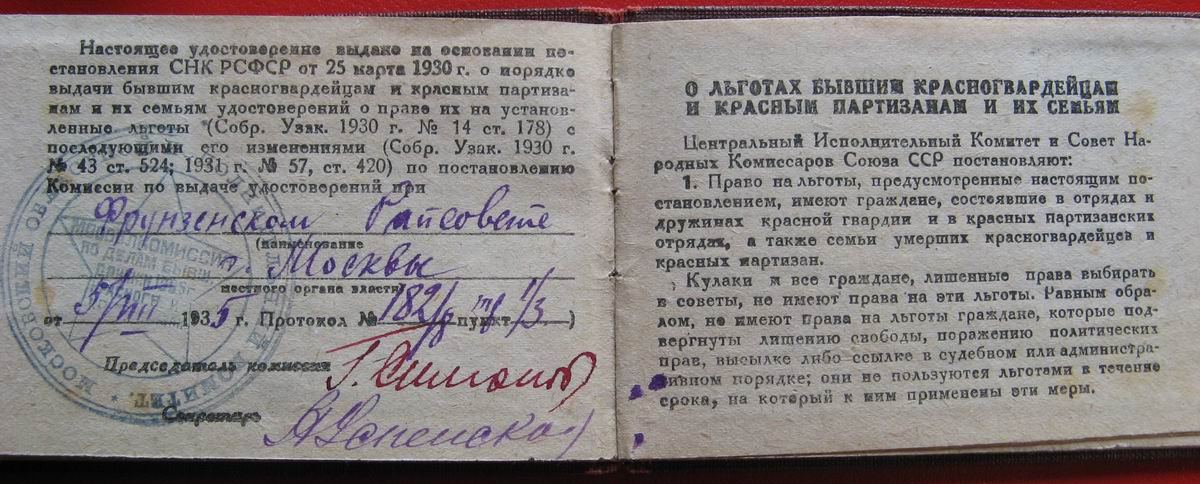 Настоящее удостоверение выдано на основании по-
становления СНК РСФСР от 25 марта 1930 г. о порядке
выдачи бывшим красногвардейцам и красным партиза-
нам и их семьям удостоверений о праве их на установ-
ленные льготы (Собр. Узак. 1930 г. № 14 ст. 178) с
последующими его изменениями (Собр. Узак. 1930 г.
№ 43 ст. 524; 1931 г. № 57, ст. 420) по постановлению
Комиссии по выдаче удостоверений при
Фрунзенском Райсовете
(наименование
г. Москвы
местного органа власти)
от 5/VIII 1935 г. Протокол № 182/ пункт 1/3 )
Председатель комиссии Г. Симонов
Секретарь А Успенская
МОСКОВСКИЙ ОБЛ
КОМИТЕТ
МОСОБЛКОМИССИЯ
ПО ДЕЛАМ БЫВШ.
О ЛЬГОТАХ БЫВШИМ КРАСНОГВАРДЕЙЦАМ
И КРАСНЫМ ПАРТИЗАНАМ И ИХ СЕМЬЯМ
Центральный Исполнительный Комитет и Совет На-
родных Комиссаров Союза ССР постановляют:
1. Право на льготы, предусмотренные настоящим по-
становлением, имеют граждане, состоявшие в отрядах и
дружинах красной гвардии и в красных партизанских
отрядах, а также семьи умерших красногвардейцев и
красных партизан.
Кулаки и все граждане, лишенные права выбирать
в советы, не имеют права на эти льготы. Равным обра-
зом, не имеют права на льготы граждане, которые под-
вергнуты лишению свободы, поражению политических
прав, высылке либо ссылке в судебном или администра-
тивном порядке; они не пользуются льготами в течение
срока, на который к ним применены эти меры.